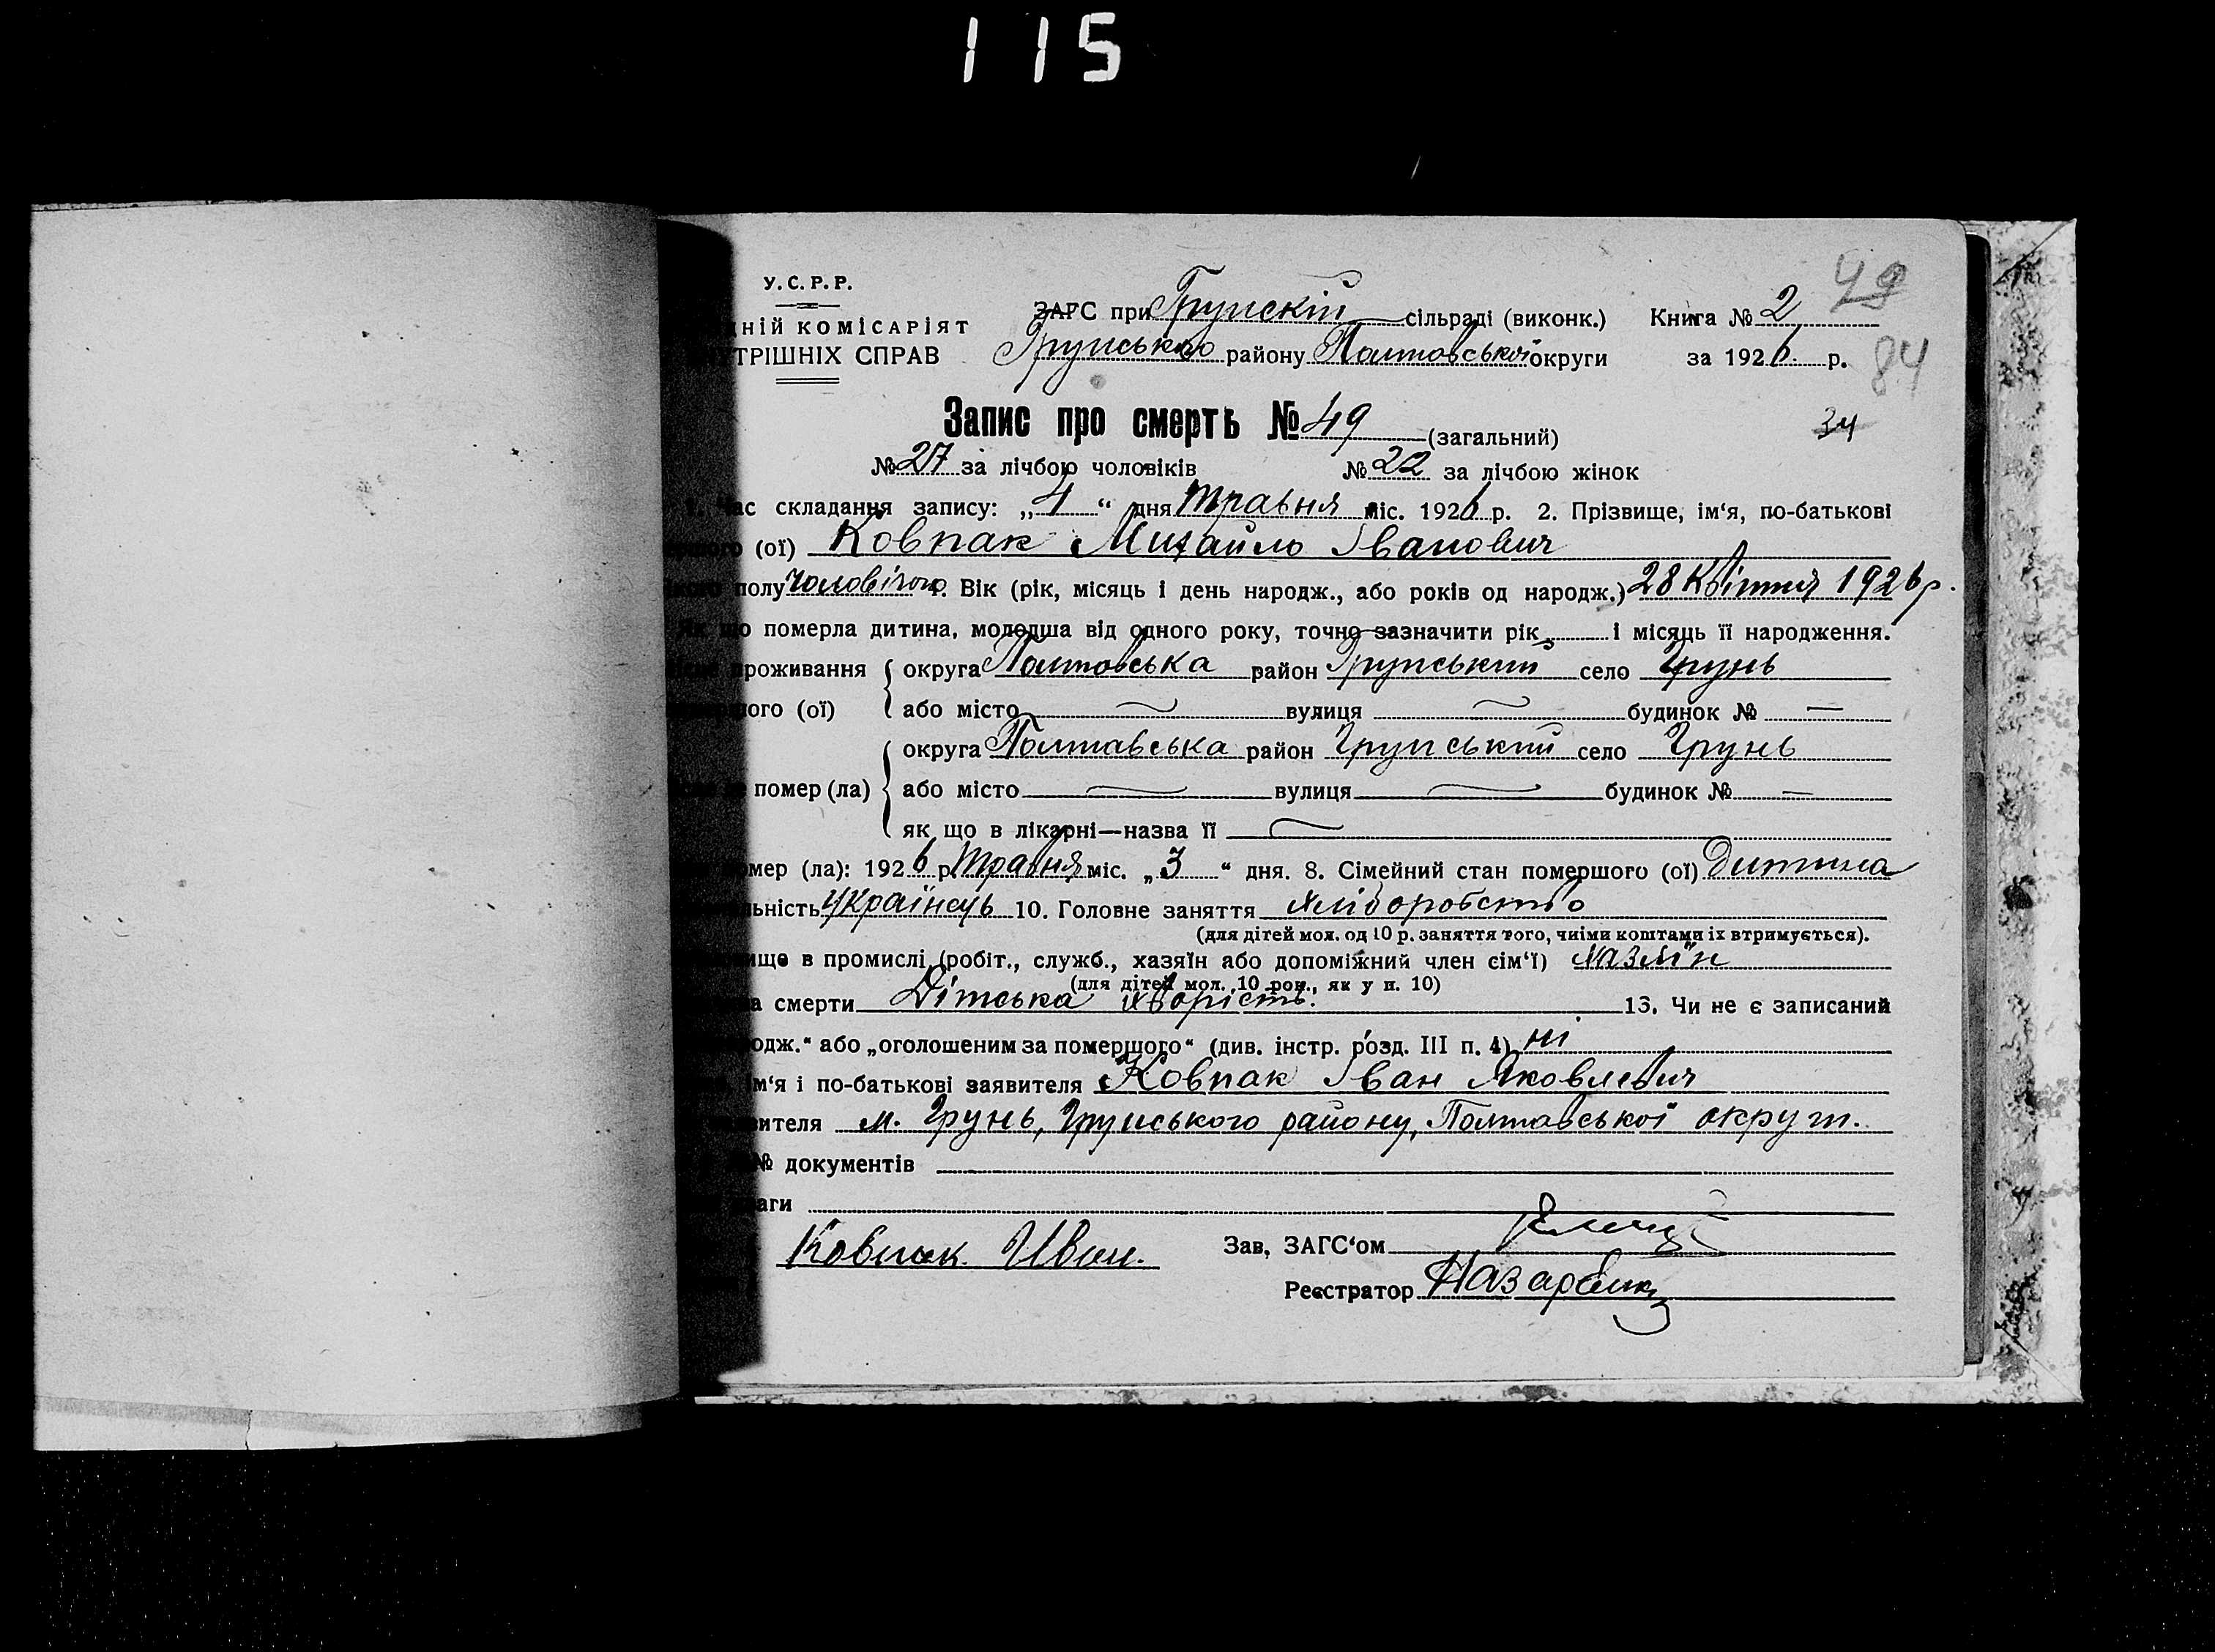 115
У.С.Р.Р.
ній комісаріят
трішніх справ
ЗАГС при Грунскій сільраді (виконк.)
Грунського району Полтовської округи
Книга № 2
за 1926 р.
49
84
34
Запис про смерть № 49 (загальний)
№ 27 за лічбою чоловіків № 22 за лічбою жінок
1. Час складання запису: „4“ дня травня міс. 1926 р. 2. Прізвище, ім‘я, по-батькові
(ої) Ковпак Михайло Іванович
полу чоловічого. Вік (рік, місяць і день народж., або років од народж.) 28 Квітня 1926 р.
Як що померла дитина, молодша від одного року, точно зазначити рік і місяць її народження.
проживання округа Полтовська район Грунський село Грунь
ого (ої) або місто — вулиця — будинок № —
округа Полтавська район Грунський село Грунь
помер (ла) або місто — вулиця — будинок № —
як що в лікарні—назва її —
мер (ла): 1926 р. травня міс. „3“ дня. 8. Сімейний стан помершого (ої) Дитина
ьність Українець 10. Головне заняття хліборобство
(для дітей мол. од 10 р. заняття того, чиїми коштами їх втримується).
ище в промислі (робіт., служб., хазяїн або допоміжний член сім‘ї) хазяїн
(для дітей мол. 10 рок., як у п. 10)
а смерти Дітська хворість. 13. Чи не є записаний
одж.“ або „оголошеним за помершого“ (див. інстр. розд. III п. 4) ні
ім‘я і по-батькові заявителя Ковпак Іван Яковлевич
вителя м. Грунь, Грунського району, Полтавської округи.
№ документів
аги
Ковпак Иван.
Зав, ЗАГС‘ом
Реєстратор